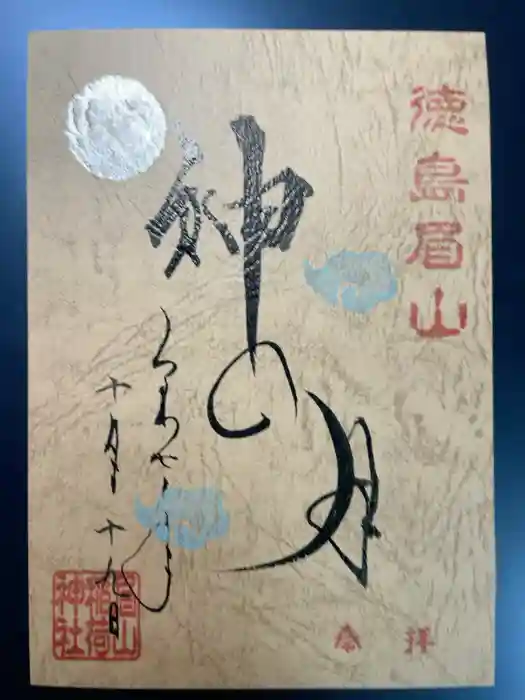 徳島眉山
奉拝
神の月
十月十九日
眉山
稲荷
神社